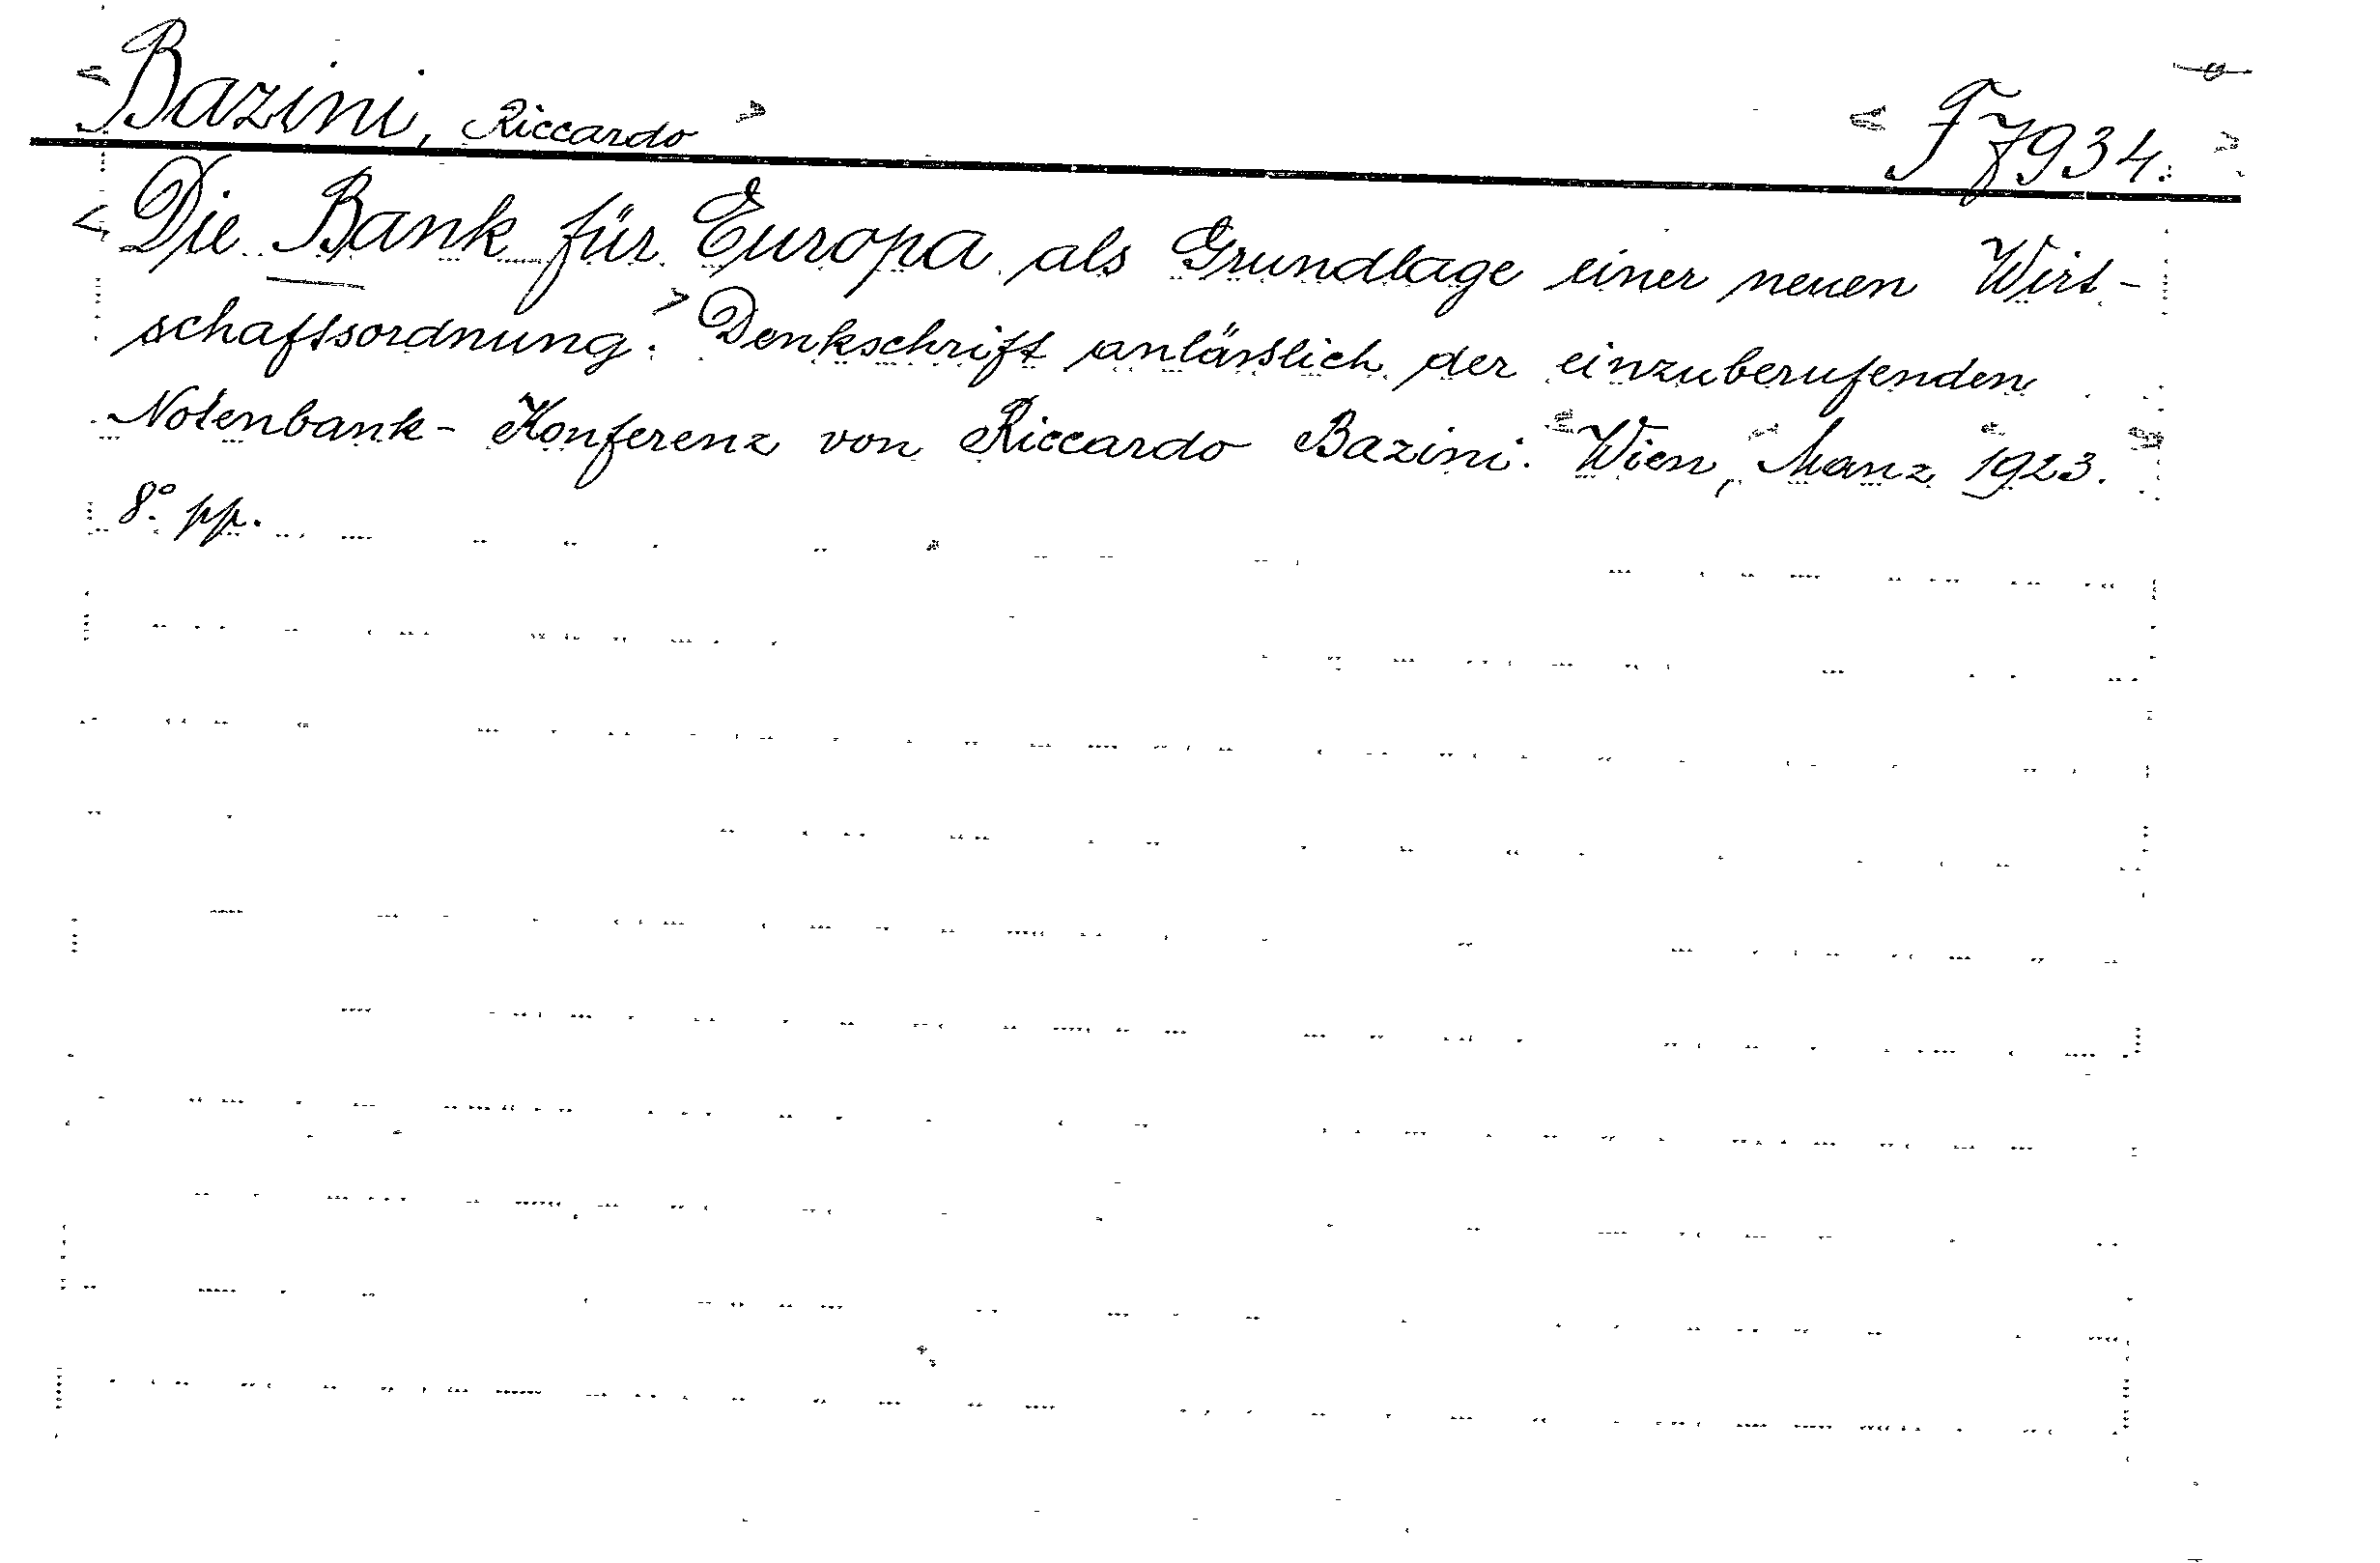 Bazini, Riccardo F 7934.
Die Bank für Europa als Grundlage einer neuen Wirt-
schaftsordnung. Denkschrift anlässlich der einzuberufenden
Notenbank-Konferenz von Riccardo Bazini. Wien, Manz 1923.
8° pp.